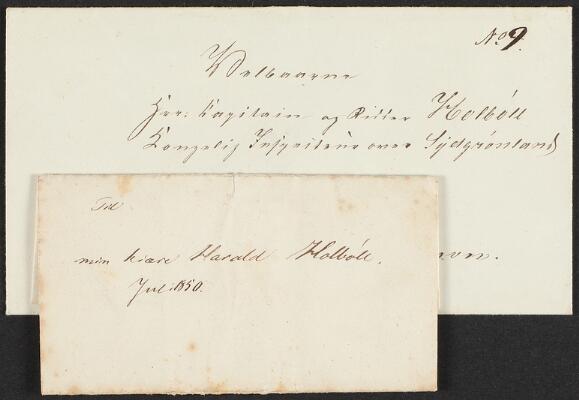 No 9.
Velbaarne
Herr: Capitain og Ridder Holböll
Kongelig Inspecteur over Sydgrönland
Til
min kiære Harald Holböll.
Jul. 1850.